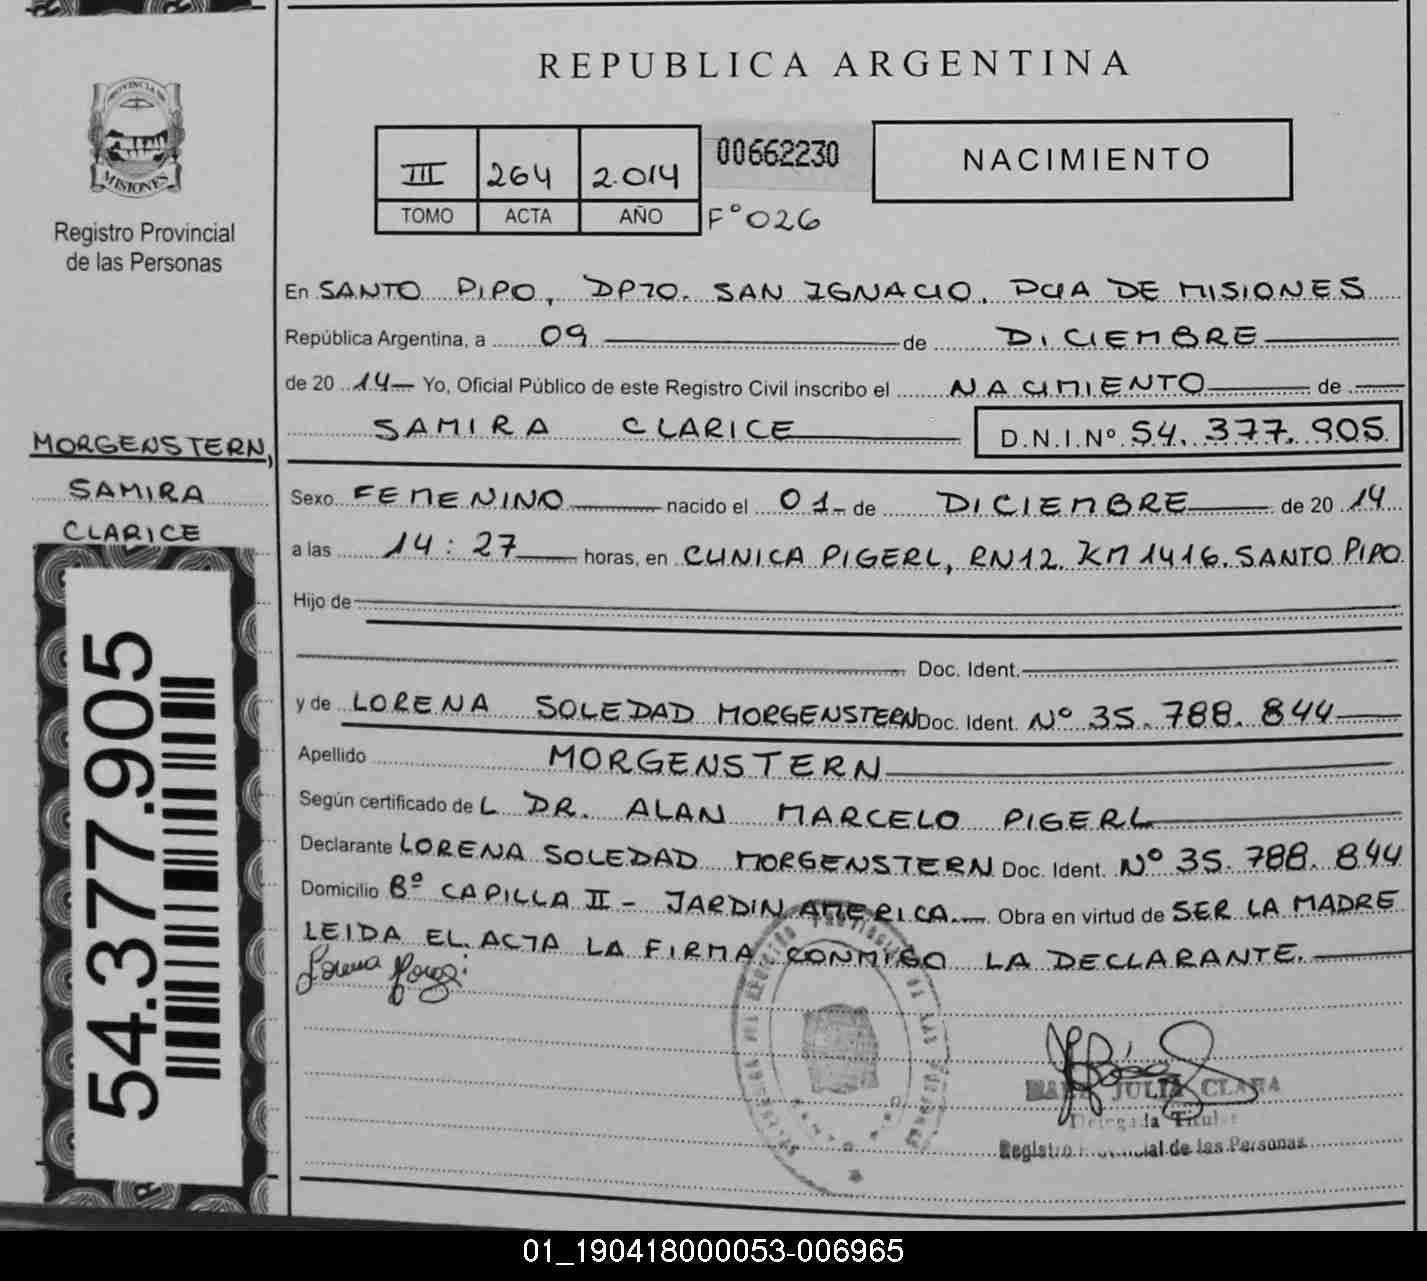 REPUBLICA ARGENTINA
PROVINCIA DE
MISIONES
Registro Provincial
de las Personas
III 264 2.014
TOMO ACTA AÑO
00662230
Fº 026
NACIMIENTO
En SANTO PIPO, DPTO. SAN IGNACIO, PCIA DE MISIONES
República Argentina, a 09 de DICIEMBRE
de 20 14 Yo, Oficial Público de este Registro Civil inscribo el NACIMIENTO de
SAMIRA CLARICE D.N.I.Nº 54.377.905
MORGENSTERN,
SAMIRA
CLARICE
Sexo FEMENINO nacido el 01 de DICIEMBRE de 20 14
a las 14:27 horas, en CLINICA PIGERL, RN12. KM1416. SANTO PIPO
Hijo de
Doc. Ident.
y de LORENA SOLEDAD MORGENSTERN Doc. Ident. Nº 35.788.844
Apellido MORGENSTERN
Según certificado de L DR. ALAN MARCELO PIGERL
Declarante LORENA SOLEDAD MORGENSTERN Doc. Ident. Nº 35.788.844
Domicilio Bº CAPILLA II - JARDIN AMERICA. Obra en virtud de SER LA MADRE
LEIDA EL ACTA LA FIRMA CONMIGO LA DECLARANTE.
Lorena
JULIA CLARA
Delegada Titular
Registro Provincial de las Personas
54.377.905
01_190418000053-006965